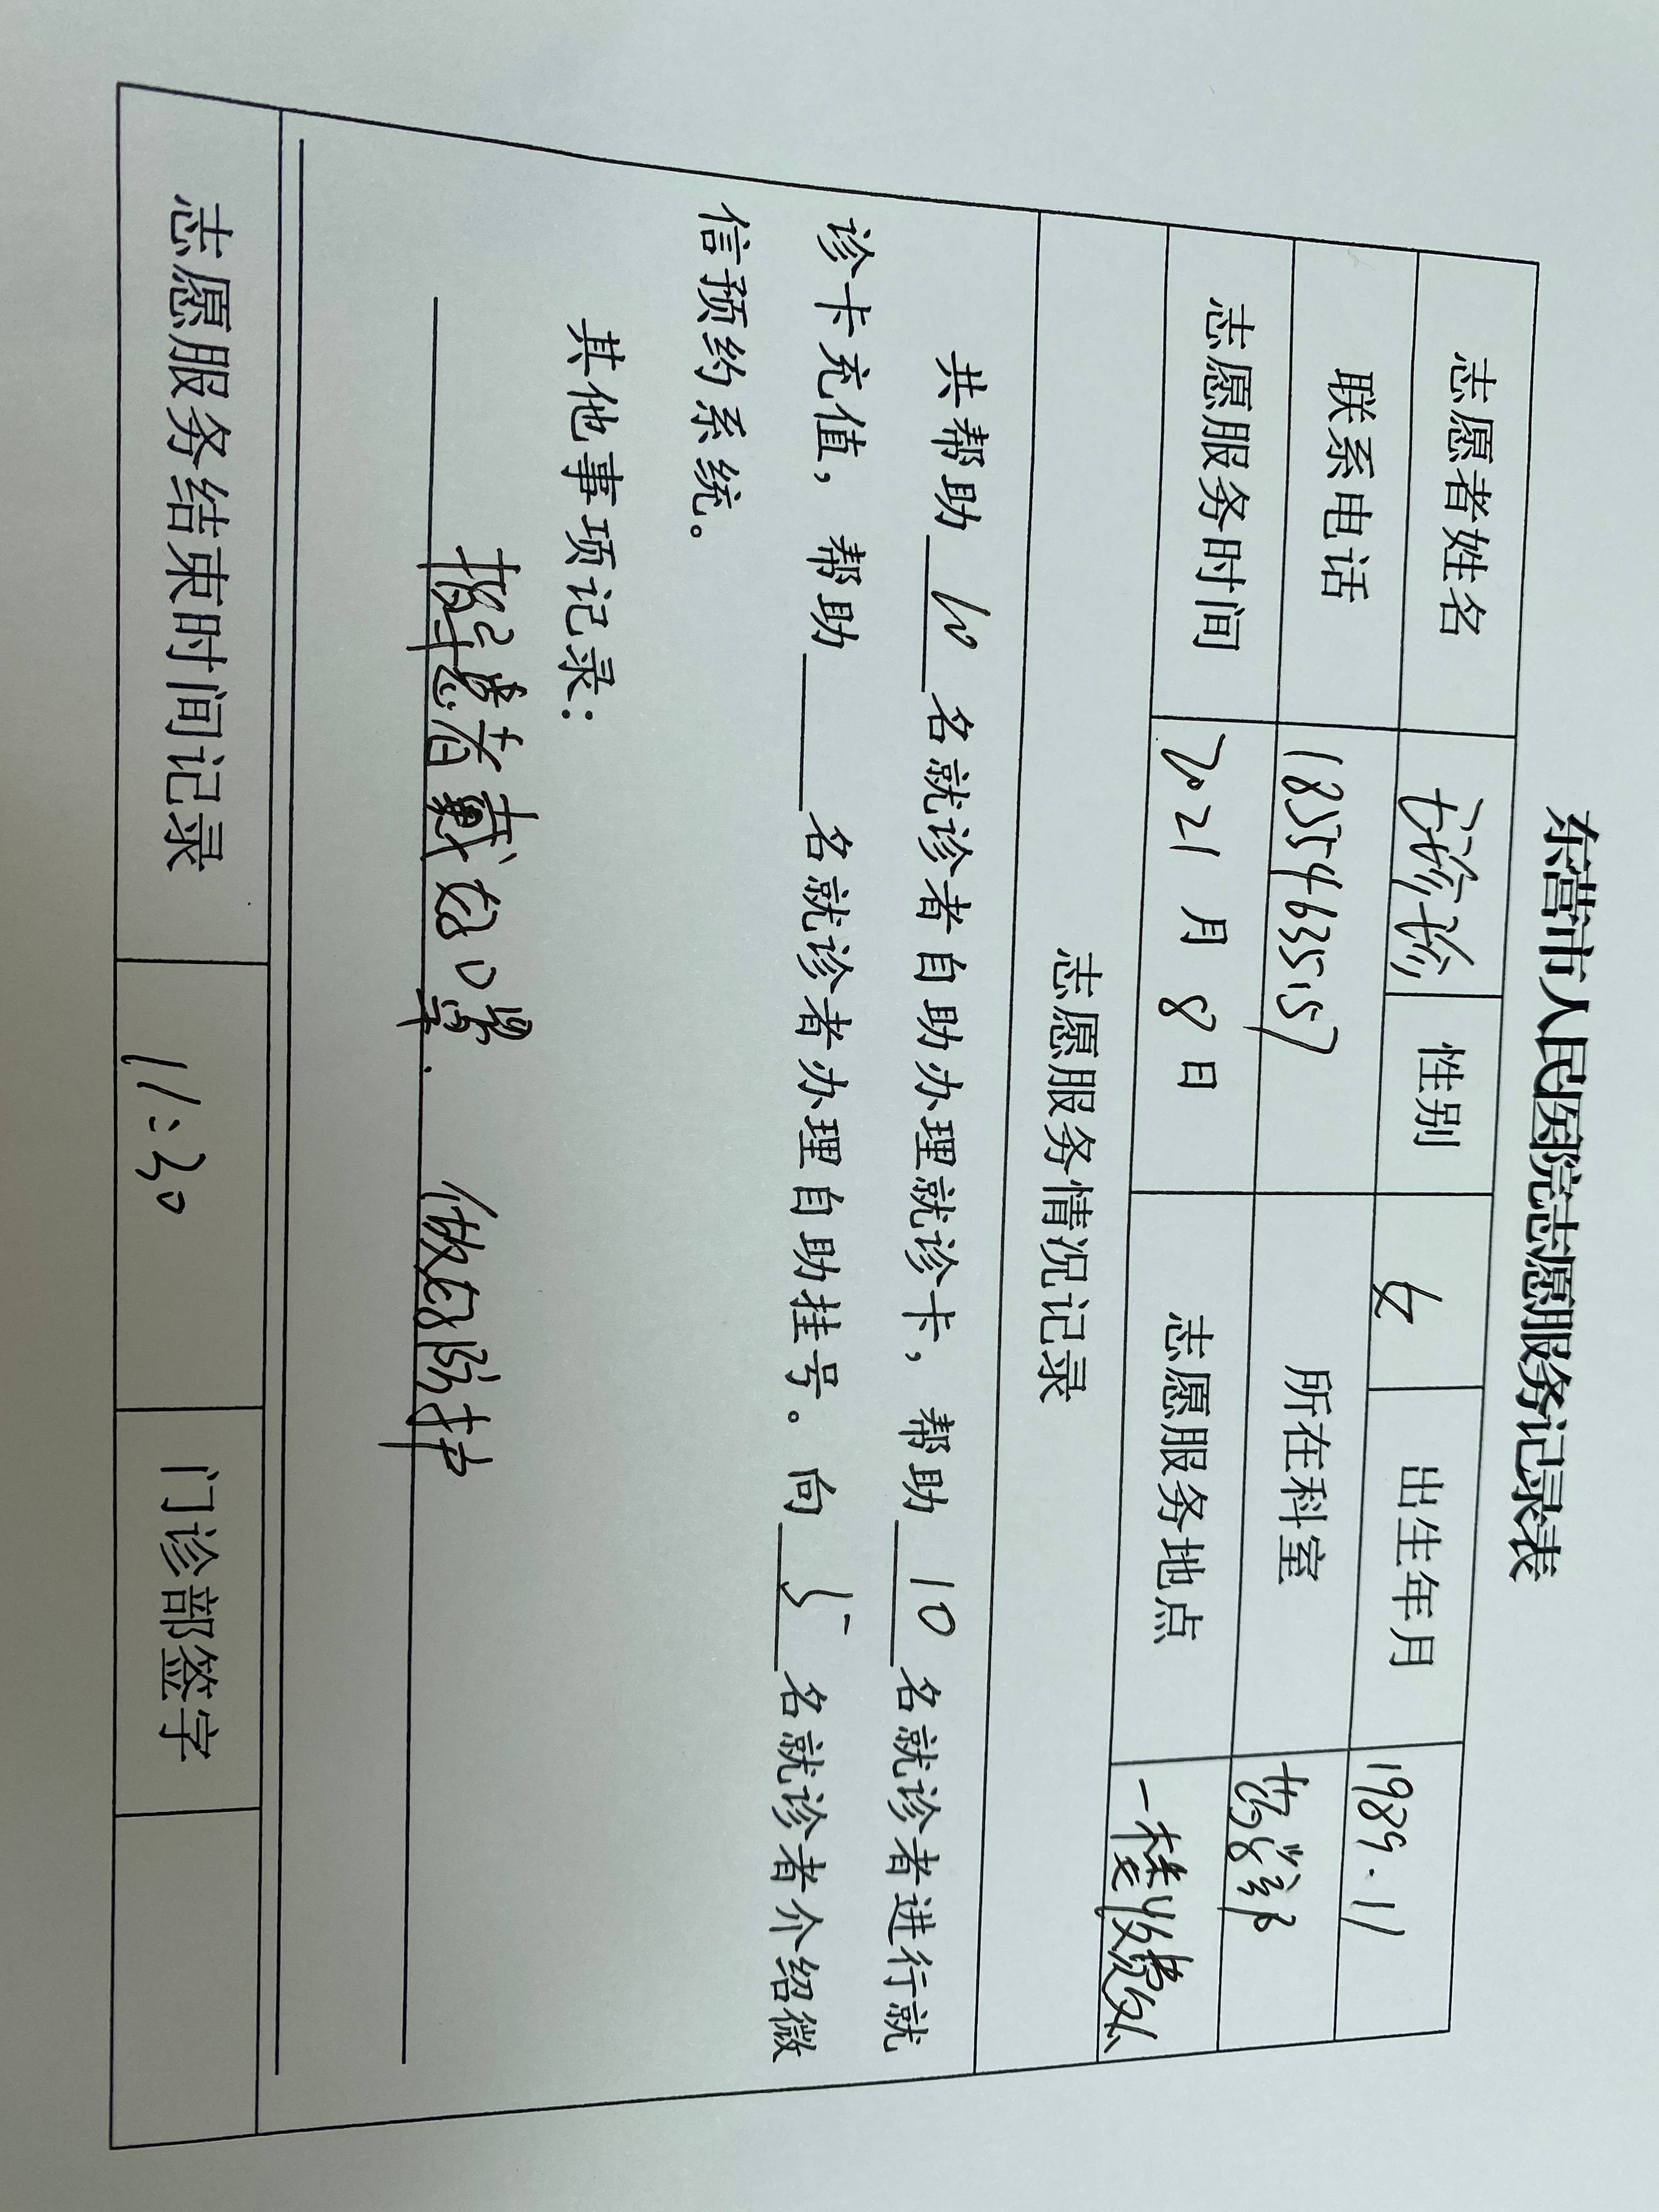 东营市人民医院志愿服务记录表
志愿者姓名 性别 女 出生年月 1989.11
联系电话 18354635157 所在科室 药学部
志愿服务时间 2021 月 8 日 志愿服务地点 一楼收费处
志愿服务情况记录
共帮助 10 名就诊者自助办理就诊卡，帮助 10 名就诊者进行就
诊卡充值，帮助 名就诊者办理自助挂号。向 5 名就诊者介绍微
信预约系统。
其他事项记录：
提醒患者戴好口罩. 做好防护
志愿服务结束时间记录 11:30 门诊部签字